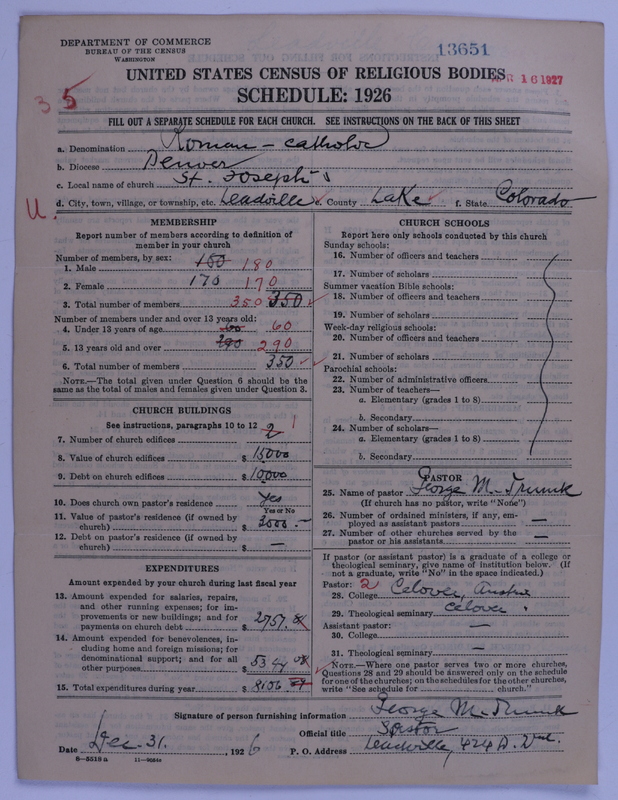 DEPARTMENT OF COMMERCE
BUREAU OF THE CENSUS
WASHINGTON
13651
UNITED STATES CENSUS OF RELIGIOUS BODIES
16 1927
SCHEDULE: 1926
35
FILL OUT A SEPARATE SCHEDULE FOR EACH CHURCH. SEE INSTRUCTIONS ON THE BACK OF THIS SHEET
a. Denomination Roman - catholic
b. Diocese Denver
c. Local name of church St. Joseph's
d. City, town, village, or township, etc. Leadville e. County Lake f. State Colorado
U.
MEMBERSHIP
Report number of members according to definition of member in your church
Number of members, by sex:
1. Male 180 180
2. Female 170 170
3. Total number of members 350 350
Number of members under and over 13 years old:
4. Under 13 years of age 60 60
5. 13 years old and over 290 290
6. Total number of members 350
NOTE.—The total given under Question 6 should be the same as the total of males and females given under Question 3.
CHURCH BUILDINGS
See instructions, paragraphs 10 to 12
7. Number of church edifices 2 1
8. Value of church edifices $ 15000
9. Debt on church edifices $ 10000
10. Does church own pastor's residence Yes
Yes or No
11. Value of pastor's residence (if owned by church) $ 2000.—
12. Debt on pastor's residence (if owned by church) $ —
EXPENDITURES
Amount expended by your church during last fiscal year
13. Amount expended for salaries, repairs, and other running expenses; for improvements or new buildings; and for payments on church debt $ 2757.
14. Amount expended for benevolences, including home and foreign missions; for denominational support; and for all other purposes $ 5344
15. Total expenditures during year $
CHURCH SCHOOLS
Report here only schools conducted by this church
Sunday schools:
16. Number of officers and teachers
17. Number of scholars
Summer vacation Bible schools:
18. Number of officers and teachers
19. Number of scholars
Week-day religious schools:
20. Number of officers and teachers
21. Number of scholars
Parochial schools:
22. Number of administrative officers
23. Number of teachers—
a. Elementary (grades 1 to 8)
b. Secondary
24. Number of scholars—
a. Elementary (grades 1 to 8)
b. Secondary
PASTOR
25. Name of pastor George M. Trunk
(If church has no pastor, write "None")
26. Number of ordained ministers, if any, employed as assistant pastors —
27. Number of other churches served by the pastor or his assistants —
If pastor (or assistant pastor) is a graduate of a college or theological seminary, give name of institution below. (If not a graduate, write "No" in the space indicated.)
Pastor: 2
28. College Celovec, Austria
29. Theological seminary Celovec
Assistant pastor: —
30. College
31. Theological seminary —
NOTE.—Where one pastor serves two or more churches, Questions 28 and 29 should be answered only on the schedule for one of the churches; on the schedules for the other churches, write "See schedule for church."
Signature of person furnishing information George M. Trunk
Official title Pastor
Date Dec. 31. , 1926 P. O. Address Leadville, 424
8—5518 a